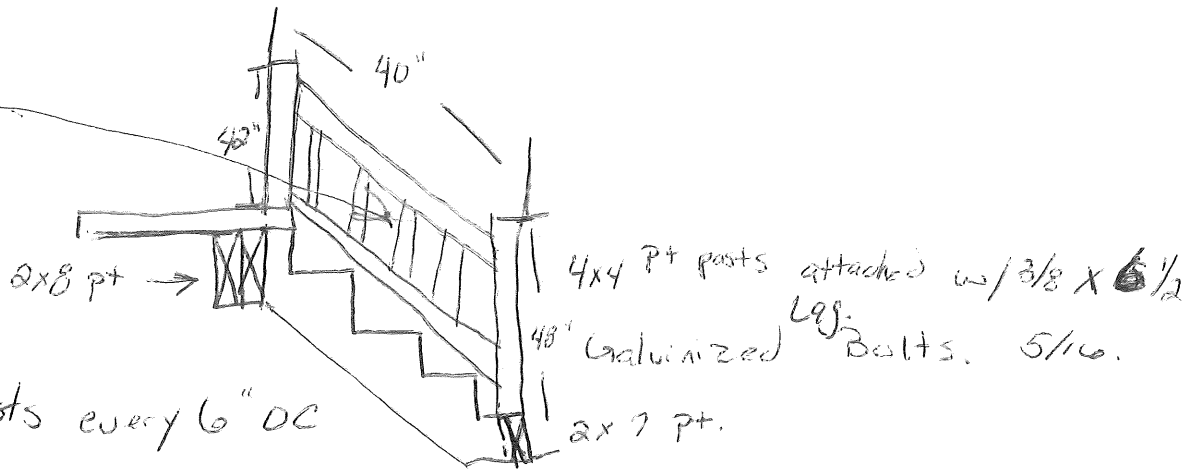 40"
42"
2x8 pt
4x4 pt posts attached w/ 3/8 X 1/2
Lag
48" Galvinized Bolts. 5/16.
every 6" OC
2x pt.